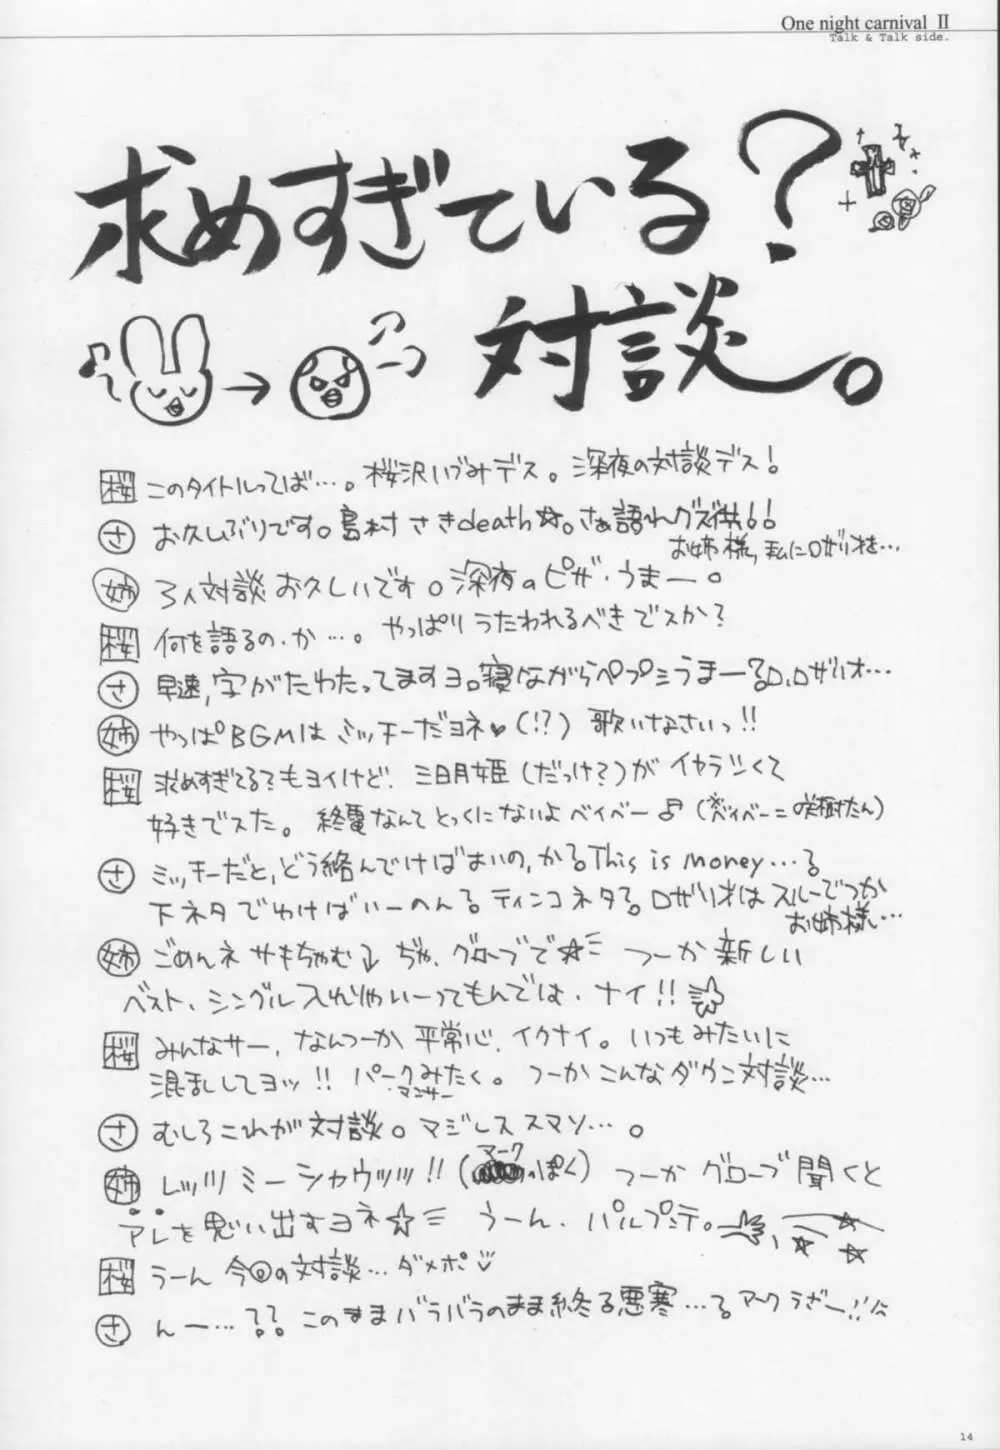 One night carnival II
Talk & Talk side.
求めすぎている?
対談。
桜 このタイトルってば…。桜沢いづみデス。深夜の対談デス!
さ お久しぶりです。島村さきdeath☆。さぁ語れグズ共!!
お姉様,私にロザリオを…
姉 3人対談お久しいです。深夜のピザ・うまー。
桜 何を語るの・か…。やっぱりうたわれるべきでスか?
さ 早速,字がたわたってますヨ。寝ながらペプシうまー?ロ、ロザリオ…
姉 やっぱBGMはミッチーだヨネ♥(!?)歌いなさいっ!!
桜 求めすぎてる?もヨイけど、三日月姫(だっけ?)がイヤラシくて
好きでスた。終電なんてとっくにないよベイベー♪(※ベイベー=咲樹たん)
さ ミッチーだと,どう絡んでけばよいの,かる This is money…る
下ネタでいけばいーのんる。ティンコネタる。ロザリオはスルーでつか
お姉様…
姉 ごめんネ サキちゃむ↓ ぢゃ、グローブで☆ミ つーか新しい
ベスト、シングル入れじゃいーってもんでは、ナイ!!
桜 みんなサー、なんつーか平常心、イクナイ。いつもみたいに
混乱してヨッ!! パークみたく。つーかこんなダウン対談…
・マンサー
さ むしろこれが対談。マジレススマソ…。
姉 レッツミーシャウッッ!!(マークっぽく) つーかグローブ聞くと
アレを思い出すヨネ☆ミ うーん、パルプンテ。
桜 うーん 今回の対談…ダメポ
さ んー…?? このままバラバラのまま終る悪寒…る マークらざー!!
14